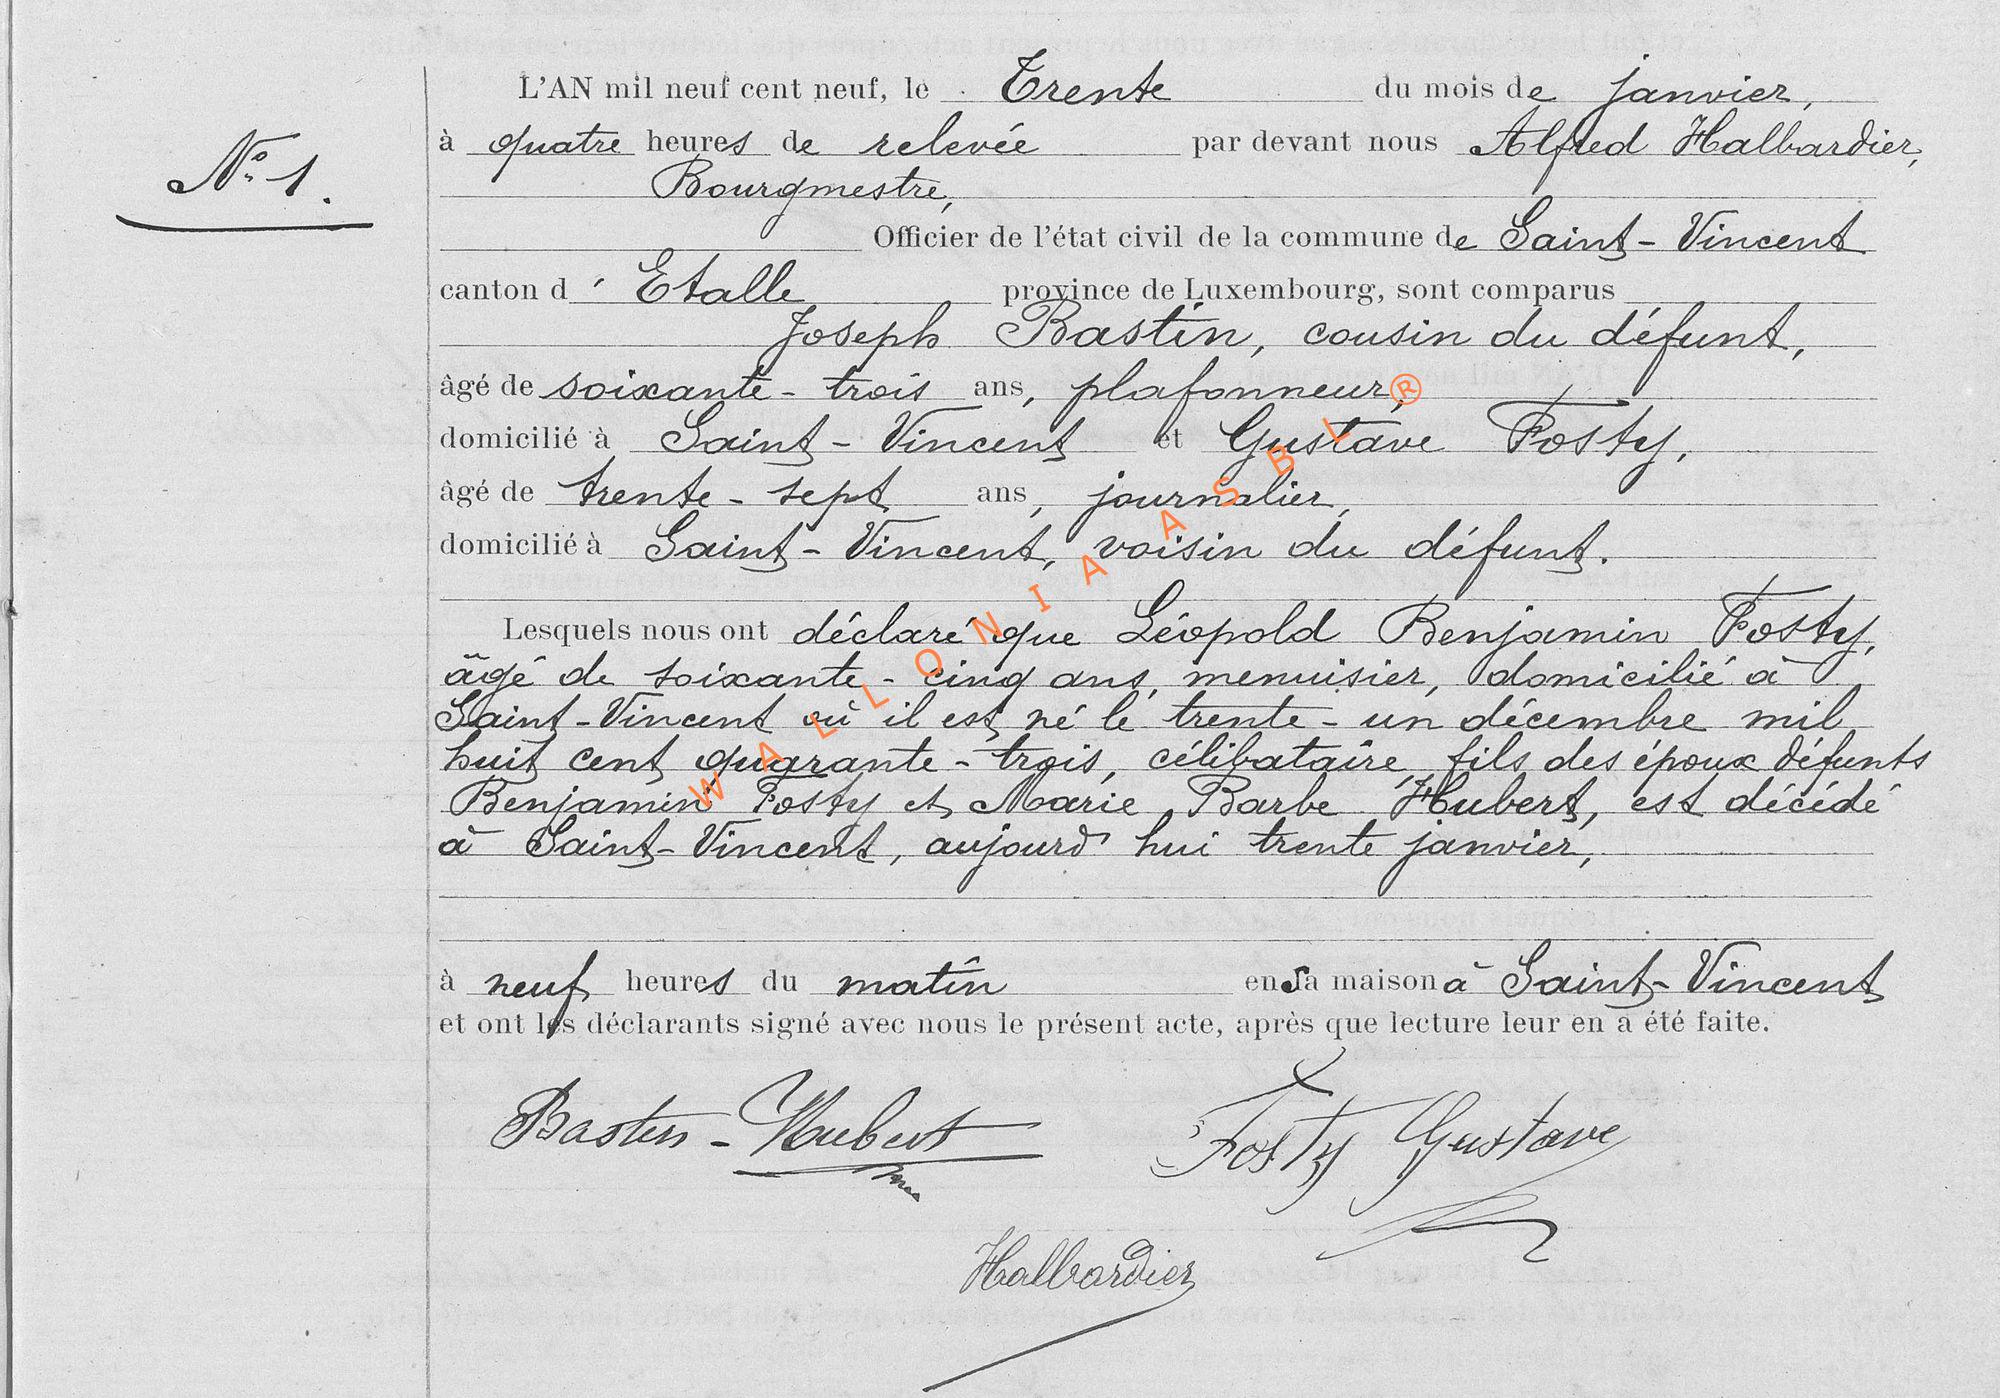 L'AN mil neuf cent neuf, le Trente du mois de janvier,
N° 1.
à quatre heures de relevée par devant nous Alfred Halbardier,
Bourgmestre,
Officier de l'état civil de la commune de Saint-Vincent
canton d'Etalle province de Luxembourg, sont comparus
Joseph Bastin, cousin du défunt,
âgé de soixante-trois ans, plafonneur,
domicilié à Saint-Vincent et Gustave Fosty,
âgé de trente-sept ans, journalier,
domicilié à Saint-Vincent, voisin du défunt.
Lesquels nous ont déclaré que Léopold Benjamin Fosty,
âgé de soixante-cinq ans, menuisier, domicilié à
Saint-Vincent où il est né le trente-un décembre mil
huit cent quarante-trois, célibataire, fils des époux défunts
Benjamin Fosty et Marie Barbe Hubert, est décédé
à Saint-Vincent, aujourd'hui trente janvier,
à neuf heures du matin en sa maison à Saint-Vincent
et ont les déclarants signé avec nous le présent acte, après que lecture leur en a été faite.
Bastin-Hubert Fosty Gustave
Halbardier
WALLONIA ASBL®